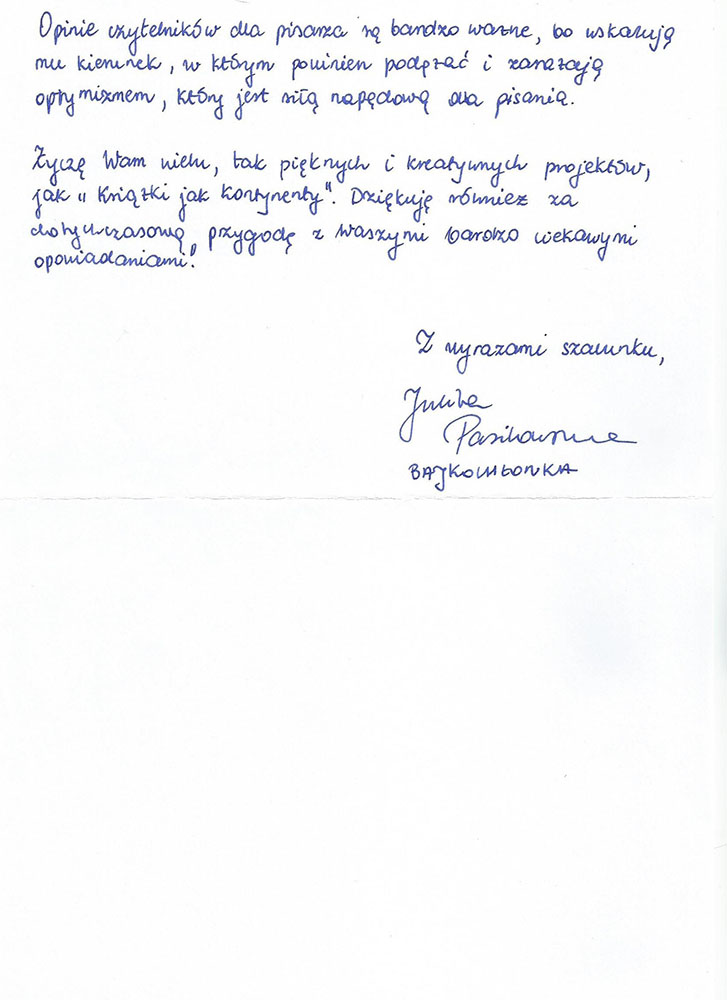 Opinie czytelników dla pisarza są bardzo ważne, bo wskazują
mu kierunek, w którym powinien podążać i zarażają
optymizmem, który jest siłą napędową dla pisania.
Życzę Wam wielu, tak pięknych i kreatywnych projektów,
jak „Książki jak kontynenty". Dziękuję również za
dotychczasową „przygodę z waszymi bardzo ciekawymi
opowiadaniami."
Z wyrazami szacunku,
BAJKOWŁONKA